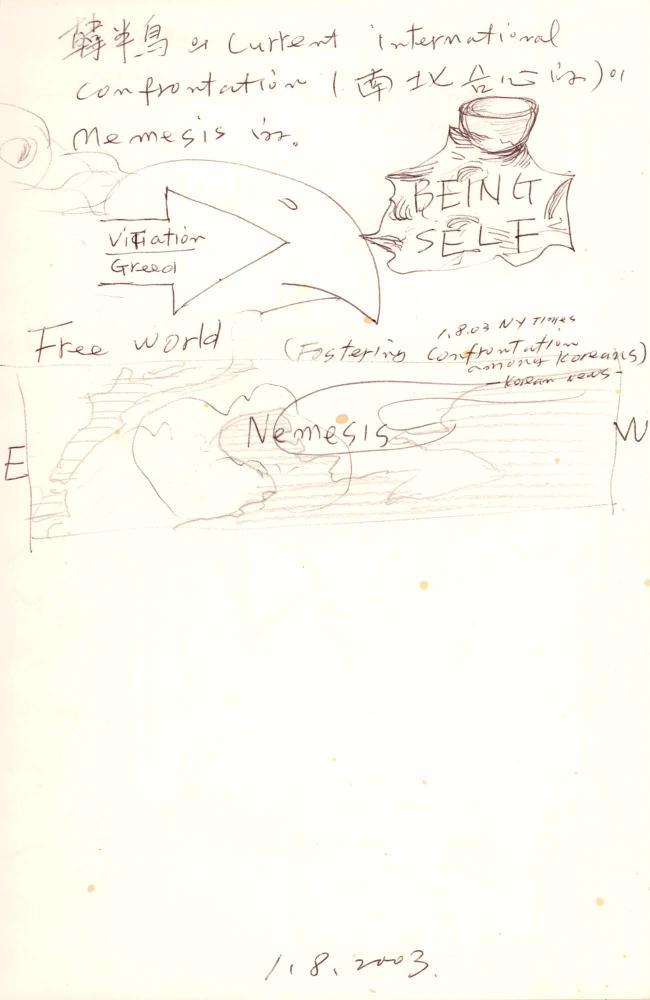 韓半島 의 Current international
Confrontation (南北合心 )이
Nemesis
BEING
SELF
Vitiation
Greed
1.8.03 NY Times
Free World (Fostering Confrontation
among Koreans)
- Korean News -
Nemesis
E W
1.8.2003.